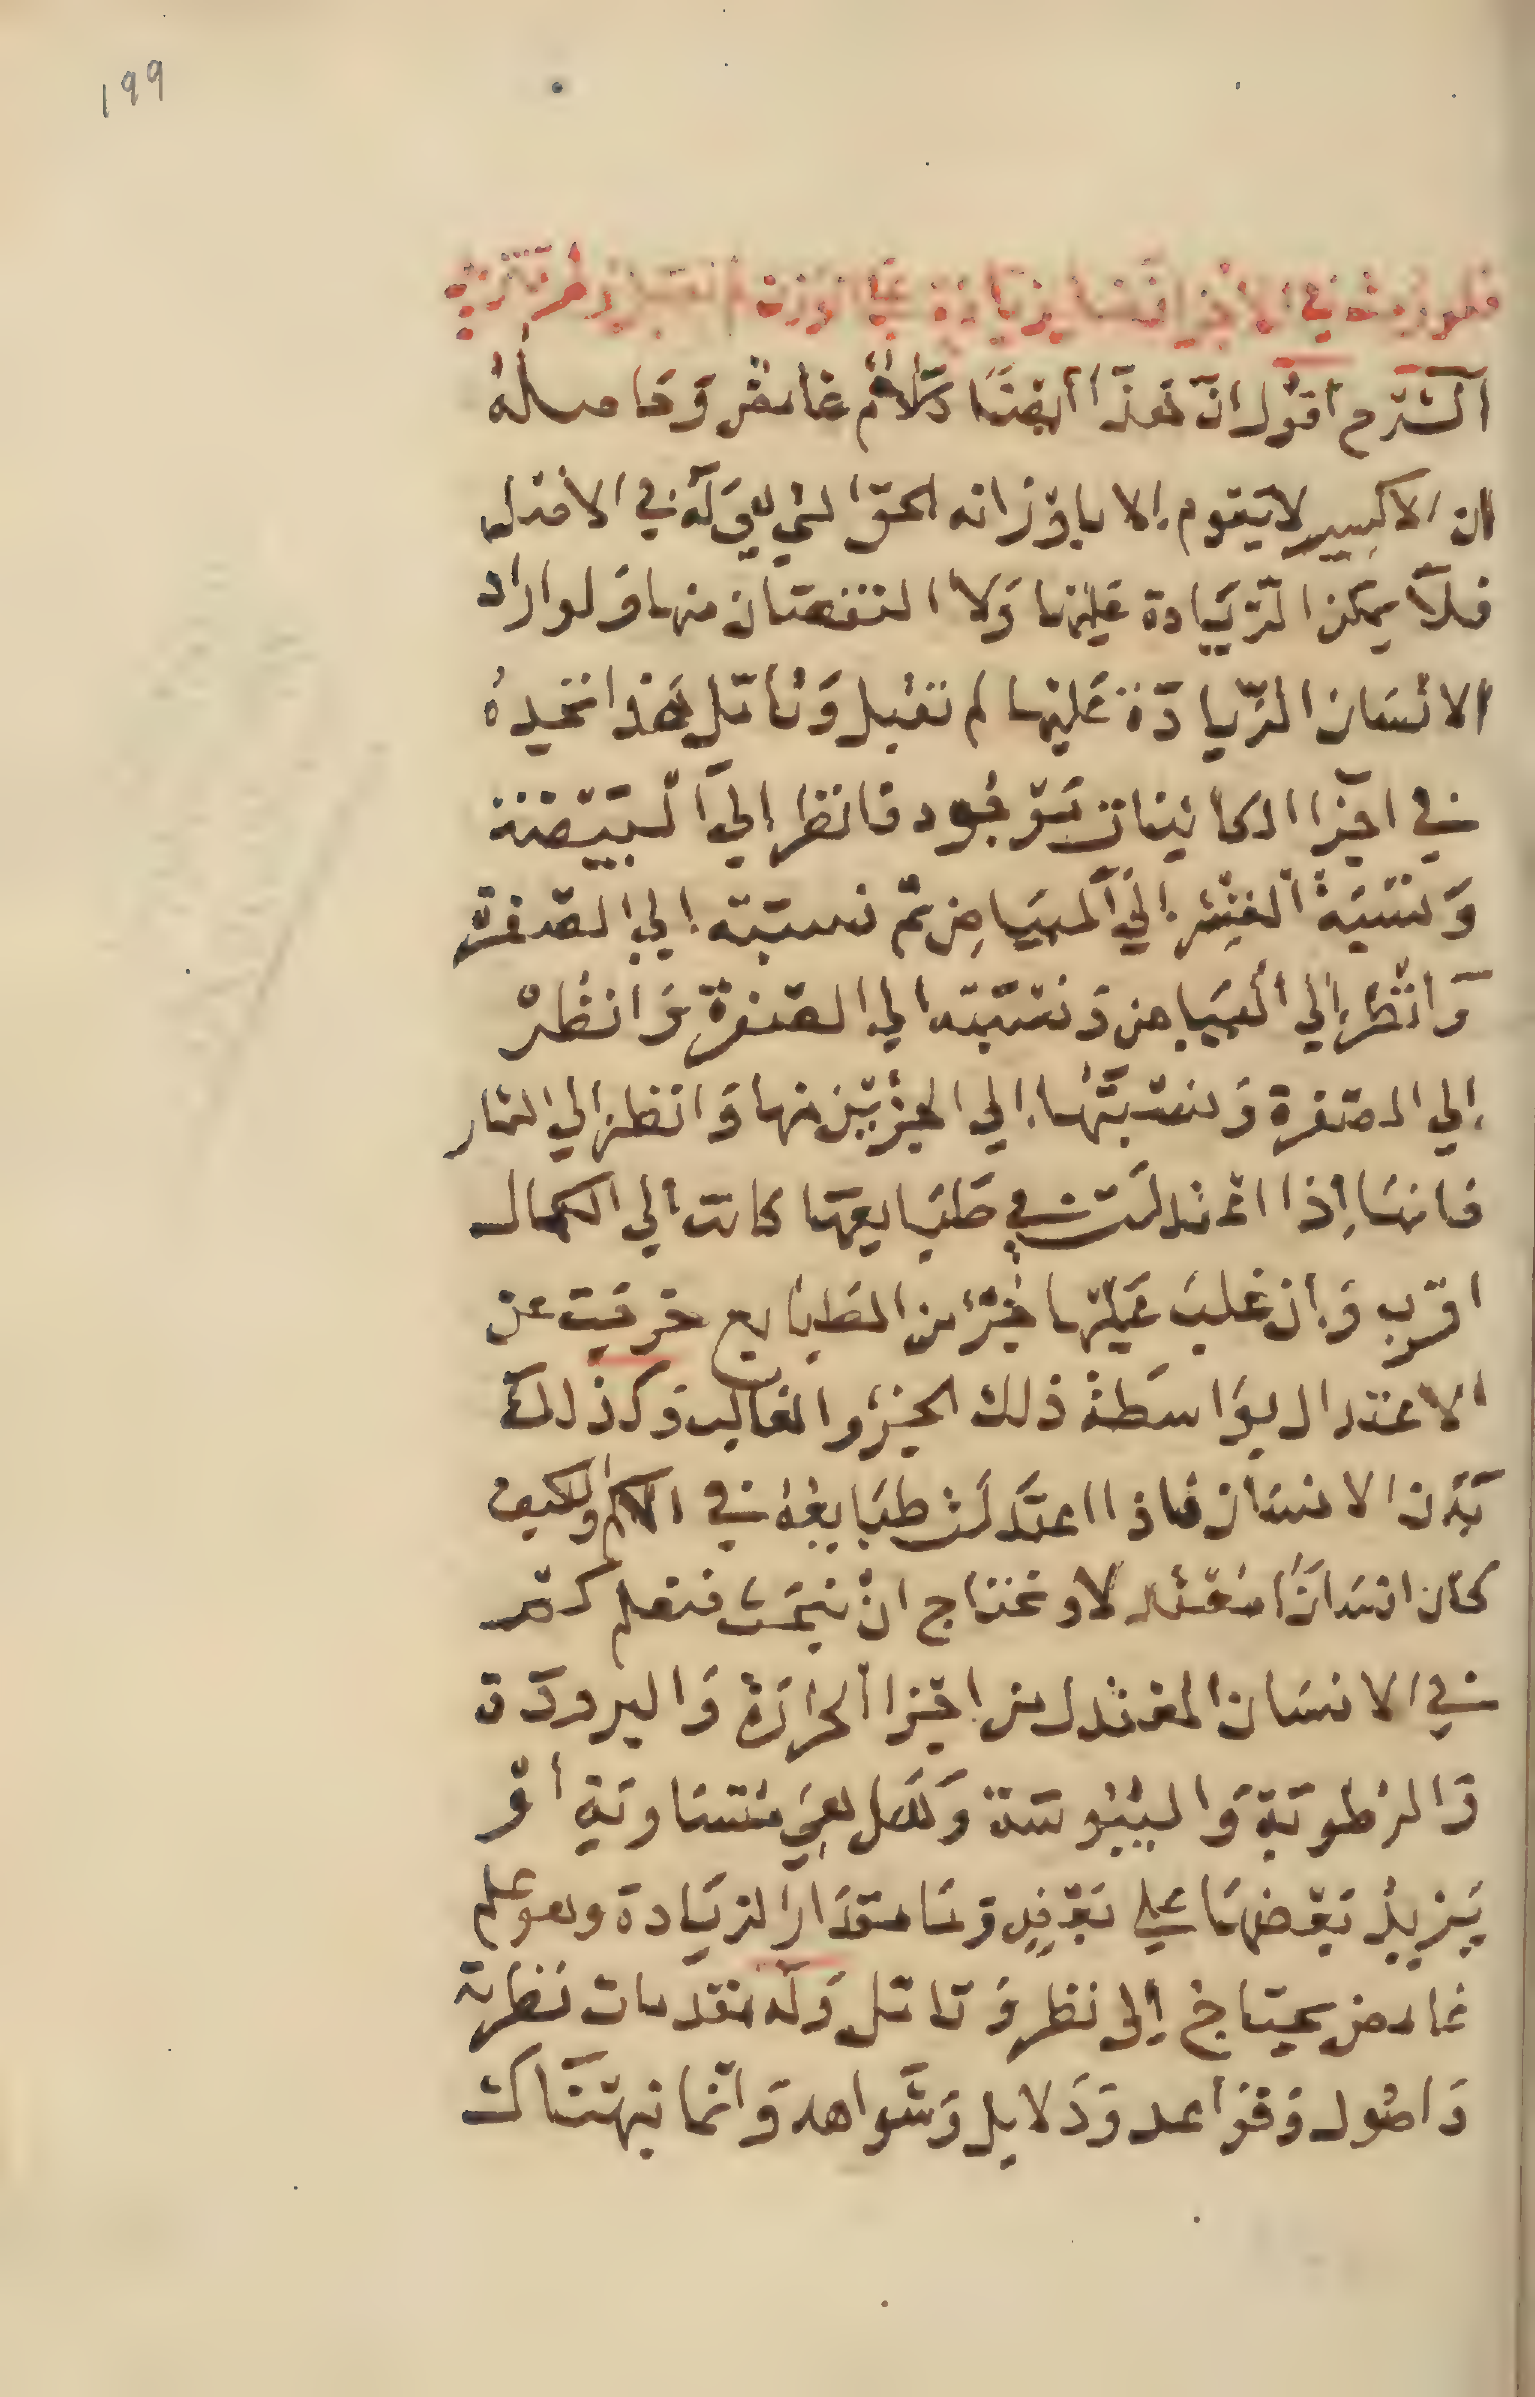 ١٩٩
فلو رمت في الاجزا زيادة علي الوزن لم تقبل
الشرح اقول ان هذا ايضا كلام غامض وحاصله
ان الاكسير لا يقوم الا باوزانه الحق التي له في الاصل
فلا يمكن الزيادة عليها ولا النقصان منها ولو اراد
الانسان الزيادة عليها لم تقبل وتامل هذا تجده
في اجزا الكاينات موجود فانظر الي البيضة
ونسبة القشر الي البياض ثم نسبته الي الصفرة
وانظر الي البياض ونسبته الي الصفرة وانظر
الي الصفرة ونسبتها الي الجزئين منها وانظر الي الثمار
فانها اذا اعتدلت في طبايعها كانت الي الكمال
اقرب وان غلب عليها جزء من الطبايع خرجت عن
الاعتدال بواسطة ذلك الجزو الغالب وكذلك
بدن الانسان فاذا اعتدلت طبايعه في الكم والكيف
كان انسانا معتدلا وتحتاج ان تبحث فتعلم كم
في الانسان المعتدل من اجزا الحرارة والبرودة
والرطوبة واليبوسة وهل هي متساوية او
يزيد بعضها علي بعض وما مقدار الزيادة وهو علم
غامض يحتاج الي نظر وتامل وله مقدمات نظرية
واصول وقواعد ودلايل وشواهد وانما نبهناك